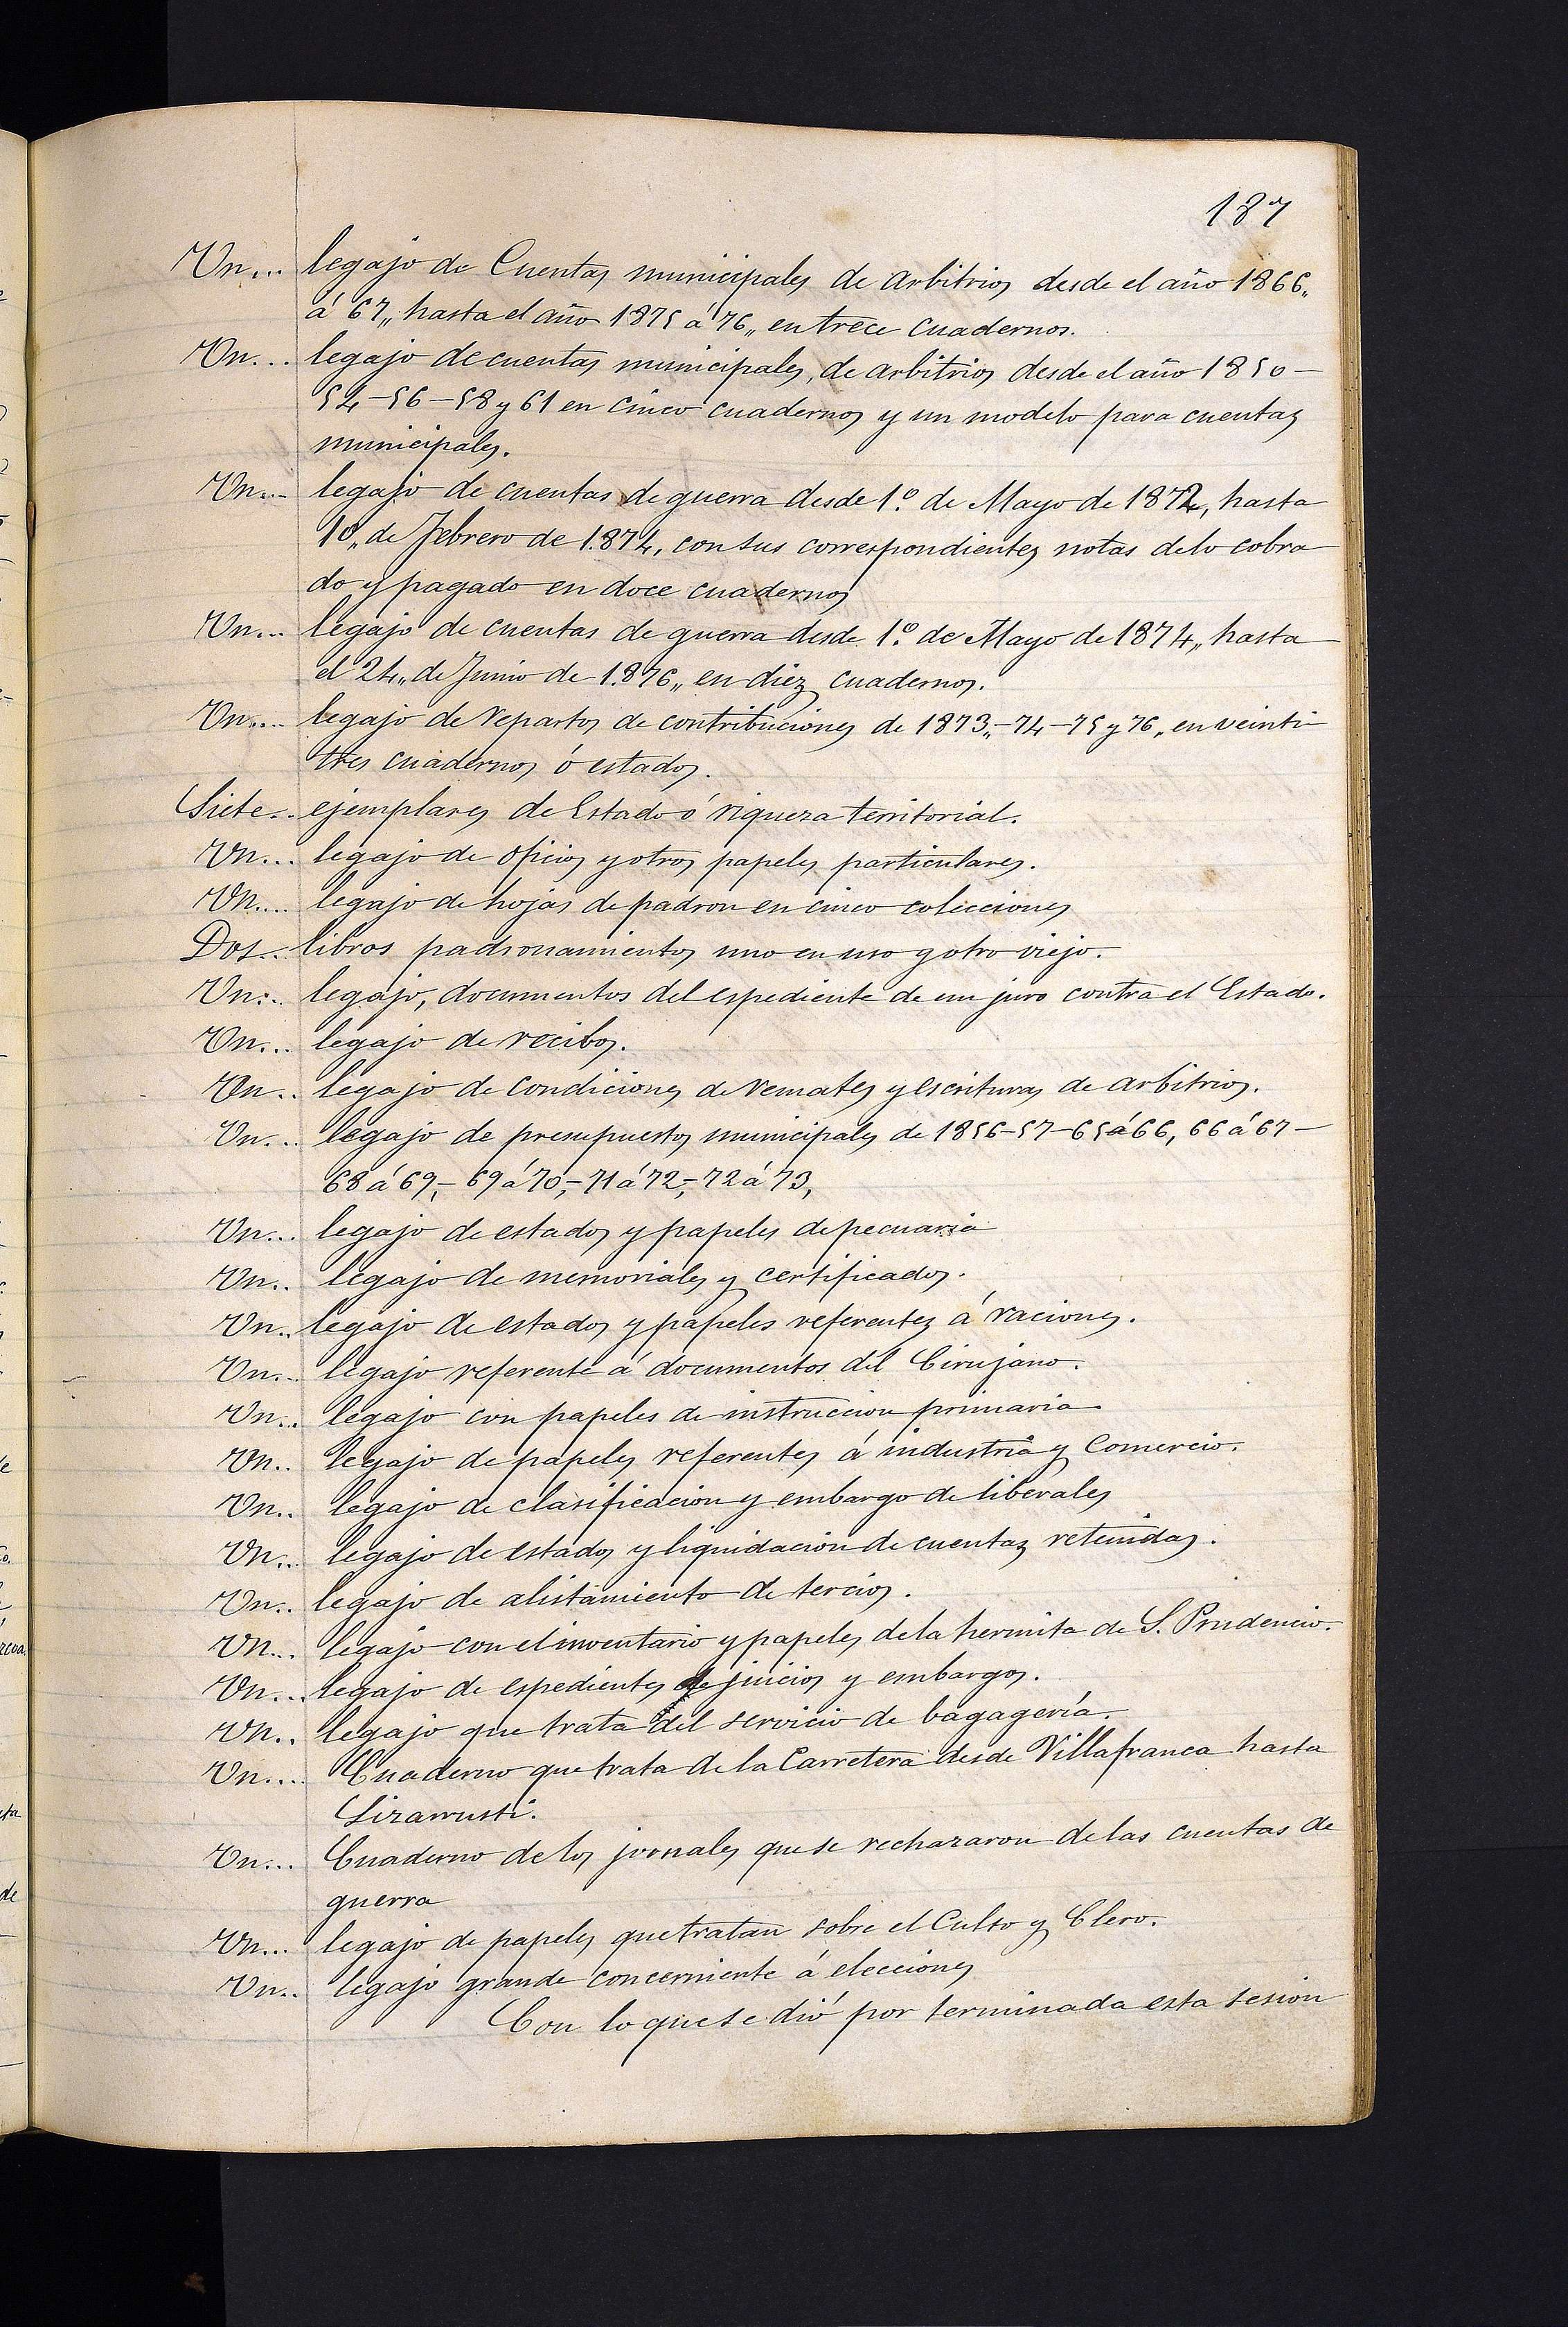 187
Un... legajo de Cuentas municipales de arbitrios desde el año 1866,,
á 67,, hasta el año 1875 á 76,, en trece cuadernos.
Un... legajo de cuentas municipales, de arbitrios desde el año 1850-
54-56-58 y 61 en cinco cuadernos y un modelo para cuentas
municipales.
Un... legajo de cuentas de guerra desde 1.º de Mayo de 1872, hasta
10,, de Febrero de 1.874, con sus correspondientes notas de lo cobra
do y pagado en doce cuadernos
Un... legajo de cuentas de guerra desde 1.º de Mayo de 1874,, hasta
el 24,, de Junio de 1.876,, en diez cuadernos.
Un.... legajo de repartos de contribuciones de 1873,,-74-75 y 76,, en veinti
tres cuadernos ó estados.
Siete.. ejemplares de Estado ó riqueza territorial.
Un... legajo de oficios y otros papeles particulares.
Un.... legajo de hojas de padron en cinco colecciones
Dos.. libros padronamientos uno en uso y otro viejo.
Un... legajo, documentos del espediente de un juro contra el Estado.
Un... legajo de recibos.
Un.. legajo de condiciones de remates y escrituras de arbitrios.
Un... legajo de presupuestos municipales de 1856-57-65 á 66, 66 á 67-
68 á 69,- 69 á 70,- 71 á 72,- 72 á 73,
Un... legajo de estados y papeles de pecuaria
Un.. legajo de memoriales y certificados.
Un.. legajo de estados y papeles referentes á raciones.
Un... legajo referente á documentos del Cirujano.
Un... legajo con papeles de instruccion primaria.
Un.. legajo de papeles referentes á industria y Comercio.
Un.. legajo de clasificacion y embargo de liberales
Un.. legajo de estados y liquidacion de cuentas retenidas.
Un.. legajo de alistamiento de tercios.
Un... legajo con el inventario y papeles de la hermita de S. Prudencio.
Un... legajo de espedientes de juicios y embargos.
Un.. legajo que trata del servicio de bagagería.
Un.... Cuaderno que trata de la Carretera desde Villafranca hasta
Lizarrusti.
Un... Cuaderno de los jornales que se rechazaron de las cuentas de
guerra
Un... legajo de papeles que tratan sobre el Culto y Clero.
Un.. legajo grande concerniente á elecciones
Con lo que se dió por terminada esta sesion